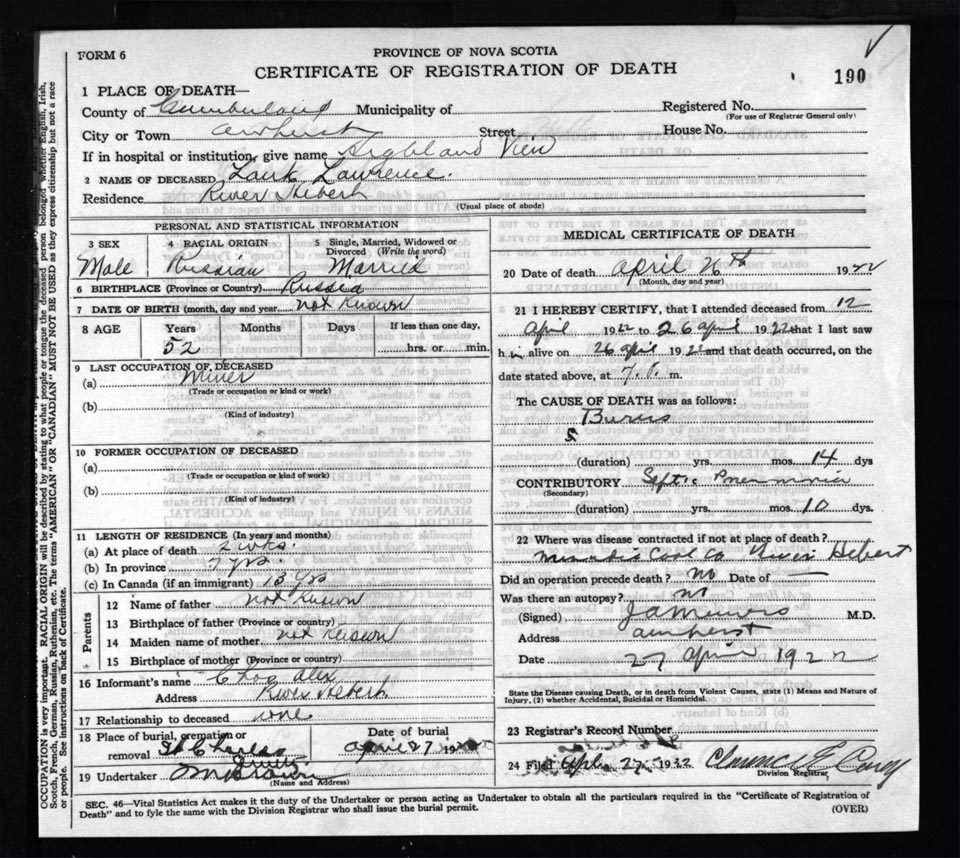 FORM 6
PROVINCE OF NOVA SCOTIA
CERTIFICATE OF REGISTRATION OF DEATH
190
1 PLACE OF DEATH—
County of Cumberland Municipality of
Registered No.
(For use of Registrar General only)
City or Town Amherst Street House No.
If in hospital or institution, give name Highland View
2 NAME OF DECEASED Lawrence.
Residence River Hebert
(Usual place of abode)
PERSONAL AND STATISTICAL INFORMATION
3 SEX
Male
4 RACIAL ORIGIN
Russian
5 Single, Married, Widowed or Divorced (Write the word)
Married
6 BIRTHPLACE (Province or Country) Russia
7 DATE OF BIRTH (month, day and year) not Known
8 AGE Years Months Days If less than one day,
52 hrs. or min.
9 LAST OCCUPATION OF DECEASED
(a) Miner
(Trade or occupation or kind or work)
(b)
(Kind of industry)
10 FORMER OCCUPATION OF DECEASED
(a)
(Trade or occupation or kind of work)
(b)
(Kind of industry)
11 LENGTH OF RESIDENCE (In years and months)
(a) At place of death 2 wks.
(b) In province 7 yrs.
(c) In Canada (if an immigrant) 13 yrs
Parents
12 Name of father not Known
13 Birthplace of father (Province or country)
14 Maiden name of mother not Known
15 Birthplace of mother (Province or country)
16 Informant's name Alex
Address River Hebert
17 Relationship to deceased
18 Place of burial, cremation or removal St Charles
Date of burial
april 27 19
19 Undertaker Brown
(Name and Address)
MEDICAL CERTIFICATE OF DEATH
20 Date of death april 26th 19
(Month, day and year)
21 I HEREBY CERTIFY, that I attended deceased from 12
April 1922 to 26 april 1922 that I last saw
h im alive on 26 april 192 and that death occurred, on the
date stated above, at 7. m.
The CAUSE OF DEATH was as follows:
Burns
(duration) yrs. mos. 14 dys
CONTRIBUTORY Septic Pneumonia
(Secondary)
(duration) yrs. mos. 10 dys.
22 Where was disease contracted if not at place of death?
Coal Co River Hebert
Did an operation precede death? no Date of —
Was there an autopsy? no
(Signed) M.D.
Address amherst
Date 27 april 1922
State the Disease causing Death, or in death from Violent Causes, state (1) Means and Nature of
Injury, (2) whether Accidental, Suicidal or Homicidal.
23 Registrar's Record Number
24 Filed 27 1932
Division Registrar
SEC. 46—Vital Statistics Act makes it the duty of the Undertaker or person acting as Undertaker to obtain all the particulars required in the "Certificate of Registration of
Death" and to fyle the same with the Division Registrar who shall issue the burial permit.
(OVER)
OCCUPATION is very important. RACIAL ORIGIN will be described by stating to what people or tongue the deceased person belonged whether English, Irish,
Scotch, French, German, Russian, Ruthenian, etc. The terms "AMERICAN" OR "CANADIAN" MUST NOT BE USED as they express citizenship but not a race
or people. See instructions on back of Certificate.